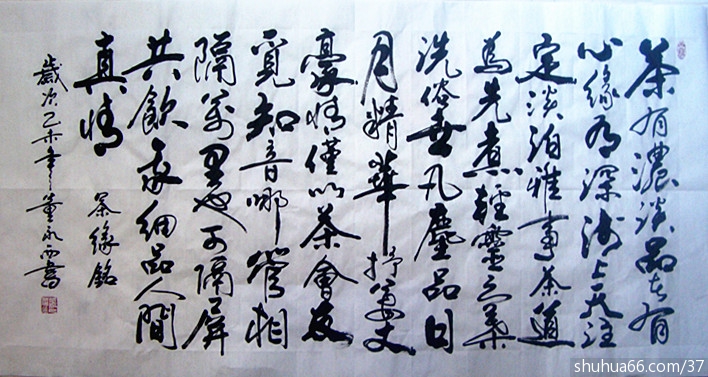 茶有濃淡品在有
心緣有深淺上天注
定淡泊雅事茶道
為先煮輕靈之葉
洗俗世凡塵品日
月精華抒萬丈
豪情僅以茶會友
覓知音哪管相
隔萬里也可隔屏
共飲細品人間
真情
茶緣銘
歲次乙未年董永西書
shuhua66.com/37